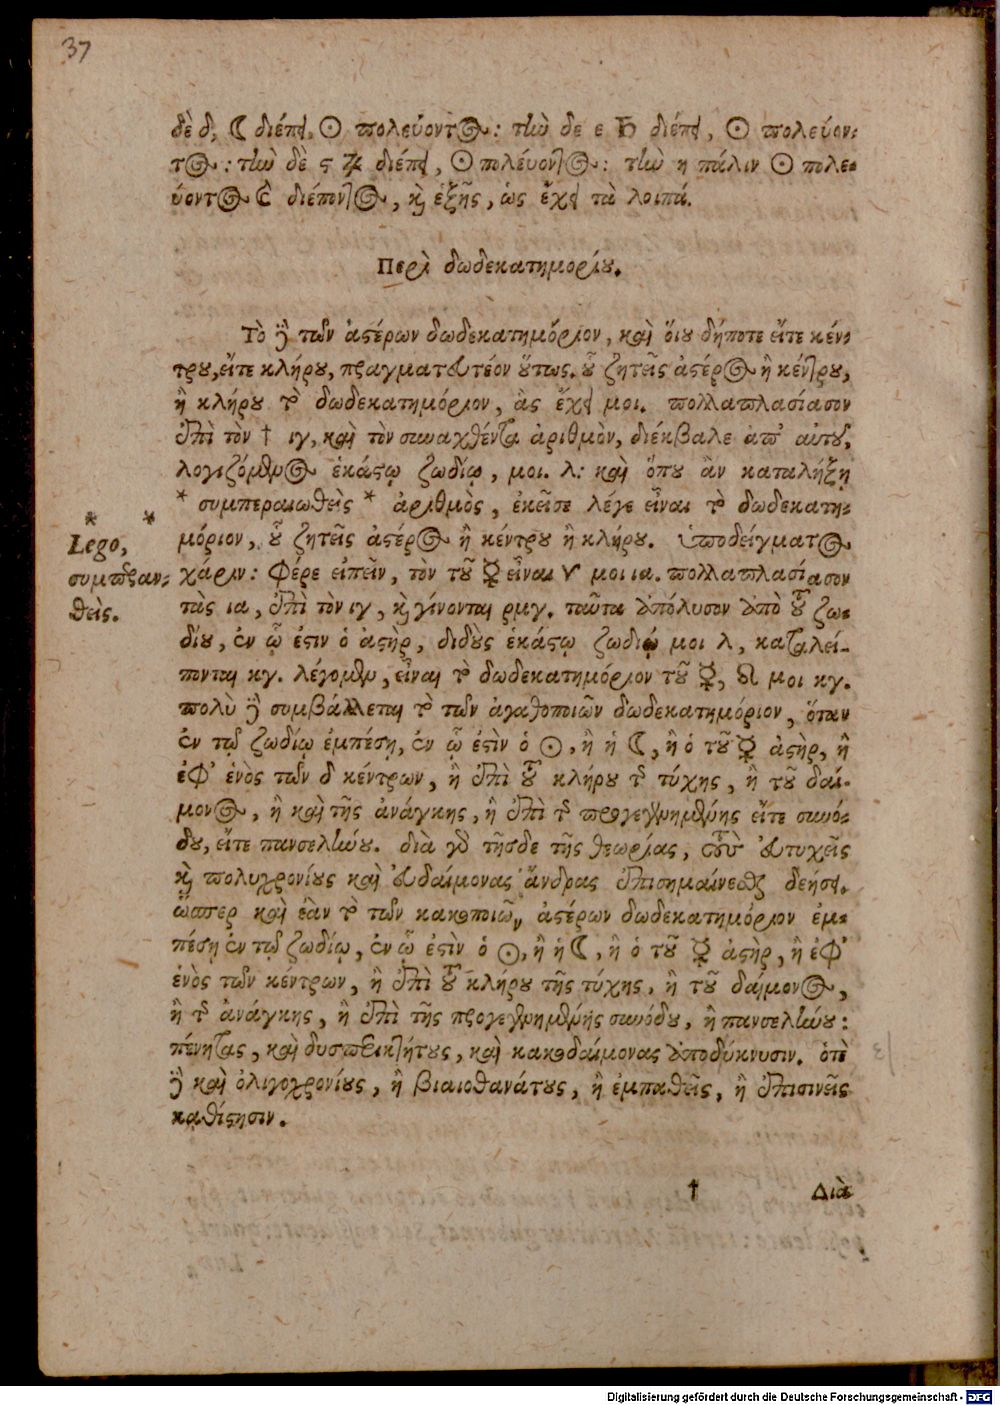 37
δὲ δ, ☾ διέπει, ☉ πολεύοντος: τὴν δε ε ♄ διέπει, ☉ πολεύον-
τος: τὴν δὲ ς ♃ διέπει, ☉ πολέυοντος: τὴν η πάλιν ☉ πολε-
ύοντος ☾ διέποντος, κὶ ἑξῆς, ὡς ἔχει τὰ λοιπά.
Περὶ δωδεκατημορίου.
Τὸ δὲ τῶν ἀστέρων δωδεκατημόριον, καὶ ὅιου δήποτε εἴτε κέν-
τρου, εἴτε κλήρου, πραγματευτέον οὕτως. οὗ ζητεῖς ἀστέρος ἢ κέντρου,
ἢ κλήρου τὸ δωδεκατημόριον, ἃς ἔχει μοι. πολλαπλασίασον
ἐπὶ τὸν † ιγ, καὶ τὸν συναχθέντα ἀριθμὸν, διέκβαλε ἀπ' αὐτοῦ,
λογιζόμενος ἑκάστῳ ζωδίῳ, μοι. λ: καὶ ὅπου ἂν καταλήξῃ
* συμπεραιωθεὶς * ἀριθμὸς, ἐκεῖσε λέγε εἶναι τὸ δωδεκατη-
μόριον, οὗ ζητεῖς ἀστέρος ἢ κέντρου ἢ κλήρου. ὑποδείγματος
* *
Lego,
συμπεραν-
θεὶς.
χάριν: Φέρε εἰπεῖν, τὸν τοῦ ☿ εἶναι ♈ μοι ια. πολλαπλασίασον
τὰς ια, ἐπὶ τὸν ιγ, κὶ γίνονται ρμγ. ταῦτα ἀπόλυσον ἀπὸ τοῦ ζω-
δίου, ἐν ᾧ ἐστιν ὁ ἀστὴρ, διδοὺς ἑκάστῳ ζωδιῴ μοι λ, καταλεί-
πονται κγ. λέγομεν, εἶναι τὸ δωδεκατημόριον τοῦ ☿, ♌ μοι κγ.
πολὺ δὲ συμβάλλεται τὸ τῶν ἀγαθοποιῶν δωδεκατημόριον, ὅταν
ἐν τῷ ζωδίῳ ἐμπέσῃ, ἐν ᾧ ἐστὶν ὁ ☉, ἢ ἡ ☾, ἢ ὁ τοῦ ☿ ἀστὴρ, ἢ
ἐφ' ἑνὸς τῶν δ κέντρων, ἢ ἐπὶ τοῦ κλήρου τῆς τύχης, ἢ τοῦ δαί-
μονος, ἢ καὶ τῆς ἀνάγκης, ἢ ἐπὶ τῆς προγεγενημένης εἴτε συνό-
δου, εἴτε πανσελήνου. διὰ γὰρ τῆσδε τῆς θεωρίας, τοὺς εὐτυχεῖς
κὶ πολυχρονίους καὶ εὐδαίμονας ἄνδρας ἐπισημαίνεσθαι δεήσει.
ὥσπερ καὶ ἐὰν τὸ τῶν κακοποιῶν ἀστέρων δωδεκατημόριον ἐμ-
πέσῃ ἐν τῷ ζωδίῳ, ἐν ᾧ ἐστὶν ὁ ☉, ἢ ἡ ☾, ἢ ὁ τοῦ ☿ ἀστὴρ, ἢ ἐφ'
ἑνὸς τῶν κέντρων, ἢ ἐπὶ τοῦ κλήρου τῆς τύχης, ἢ τοῦ δαίμονος,
ἢ τῆς ἀνάγκης, ἢ ἐπὶ τῆς προγεγενημένης συνόδου, ἢ πανσελήνου:
πένητας, καὶ δυσπερικτήτους, καὶ κακοδαίμονας ἀποδύκνυσιν. ὁτὲ
δὲ καὶ ὀλιγοχρονίους, ἢ βιαιοθανάτους, ἢ ἐμπαθεῖς, ἢ ἐπισινεῖς
καθίστησιν.
† Διὰ
Digitalisierung gefördert durch die Deutsche Forschungsgemeinschaft - DFG